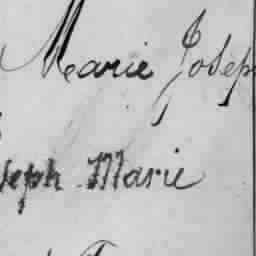 Marie Josep
seph Marie